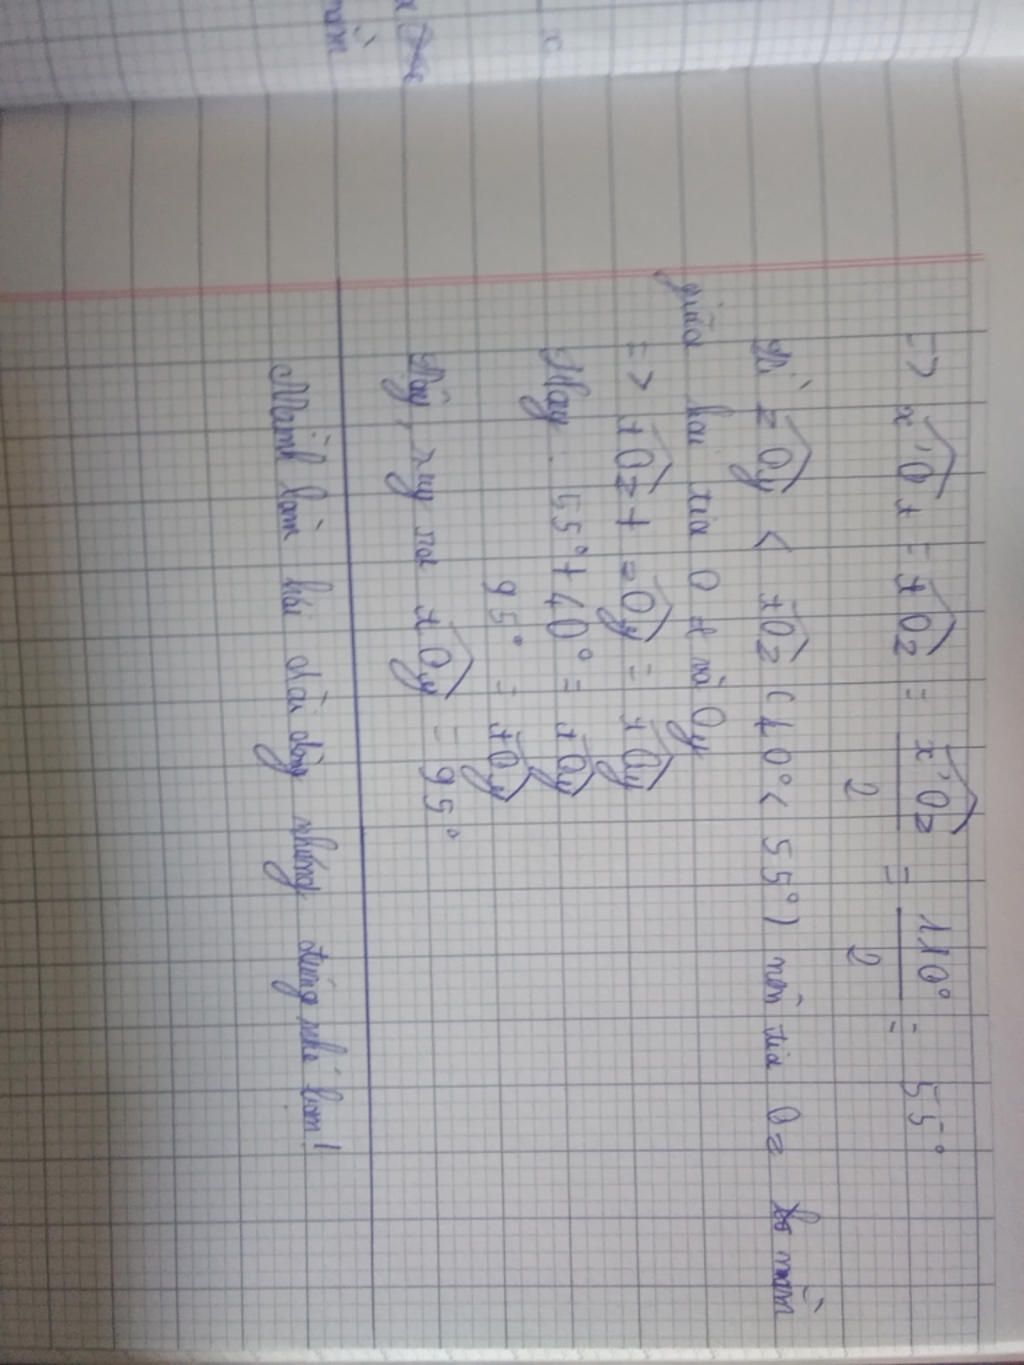 => x'Ot = tOz = x'Oz / 2 = 110° / 2 = 55°
Vì zOy < tOz (40° < 55°) nên tia Oz nằm
giữa hai tia Ot và Oy
=> tOz + zOy = tOy
Hay: 55° + 40° = tOy
95° = tOy
Vậy, suy ra tOy = 95°
Mình làm hơi dài dòng nhưng đúng nhé bạn!
x